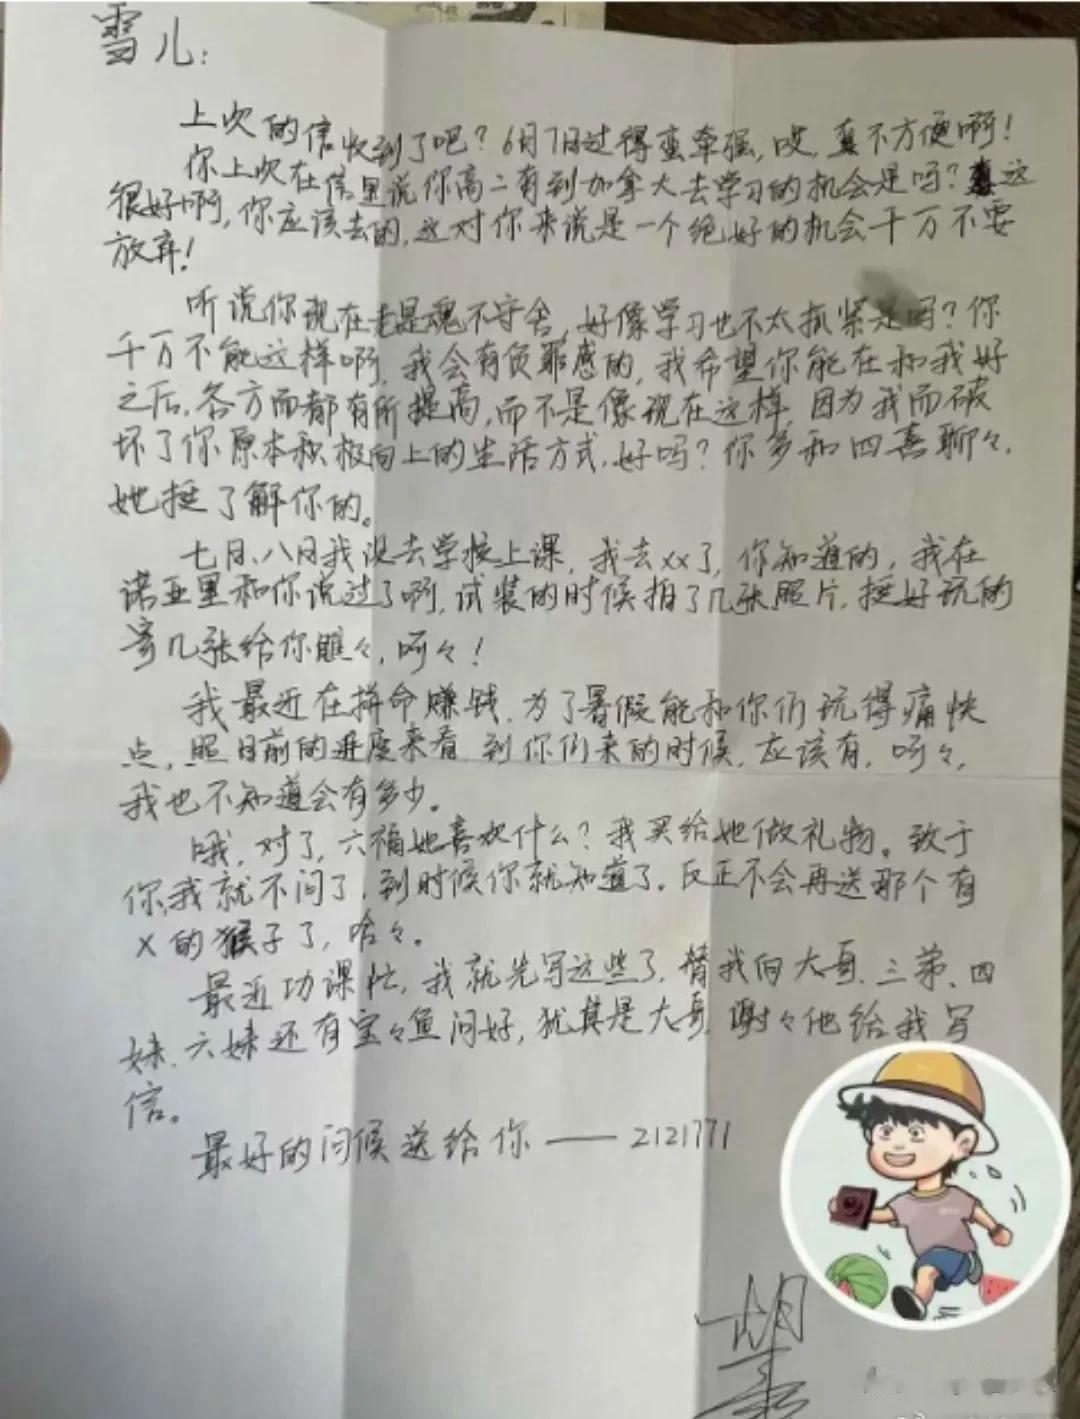 雪儿：
上次的信收到了吧？6月7日过得蛮牵强，哎，真不方便啊！
你上次在信里说你高二有到加拿大去学习的机会是吗？这
很好啊，你应该去的，这对你来说是一个绝好的机会千万不要
放弃！
听说你现在老是魂不守舍，好像学习也不太抓紧是吗？你
千万不能这样啊，我会有负罪感的，我希望你能在和我好
之后，各方面都有所提高，而不是像现在这样，因为我而破
坏了你原本积极向上的生活方式，好吗？你多和四喜聊々，
她挺了解你的。
七日、八日我没去学校上课，我去xx了，你知道的，我在
诺亚里和你说过了啊，试装的时候拍了几张照片，挺好玩的
寄几张给你瞧々，呵々！
我最近在拼命赚钱，为了暑假能和你们玩得痛快
点，照目前的进度来看，到你们来的时候，应该有，呵々，
我也不知道会有多少。
哦，对了，六福她喜欢什么？我买给她做礼物。致于
你，我就不问了，到时候你就知道了。反正不会再送那个有
X的猴子了，哈々。
最近功课忙，我就先写这些了，替我向大哥、三弟、四
妹、六妹还有宝々鱼问好，犹其是大哥，谢々他给我写
信。
最好的问候送给你——2121771
胡